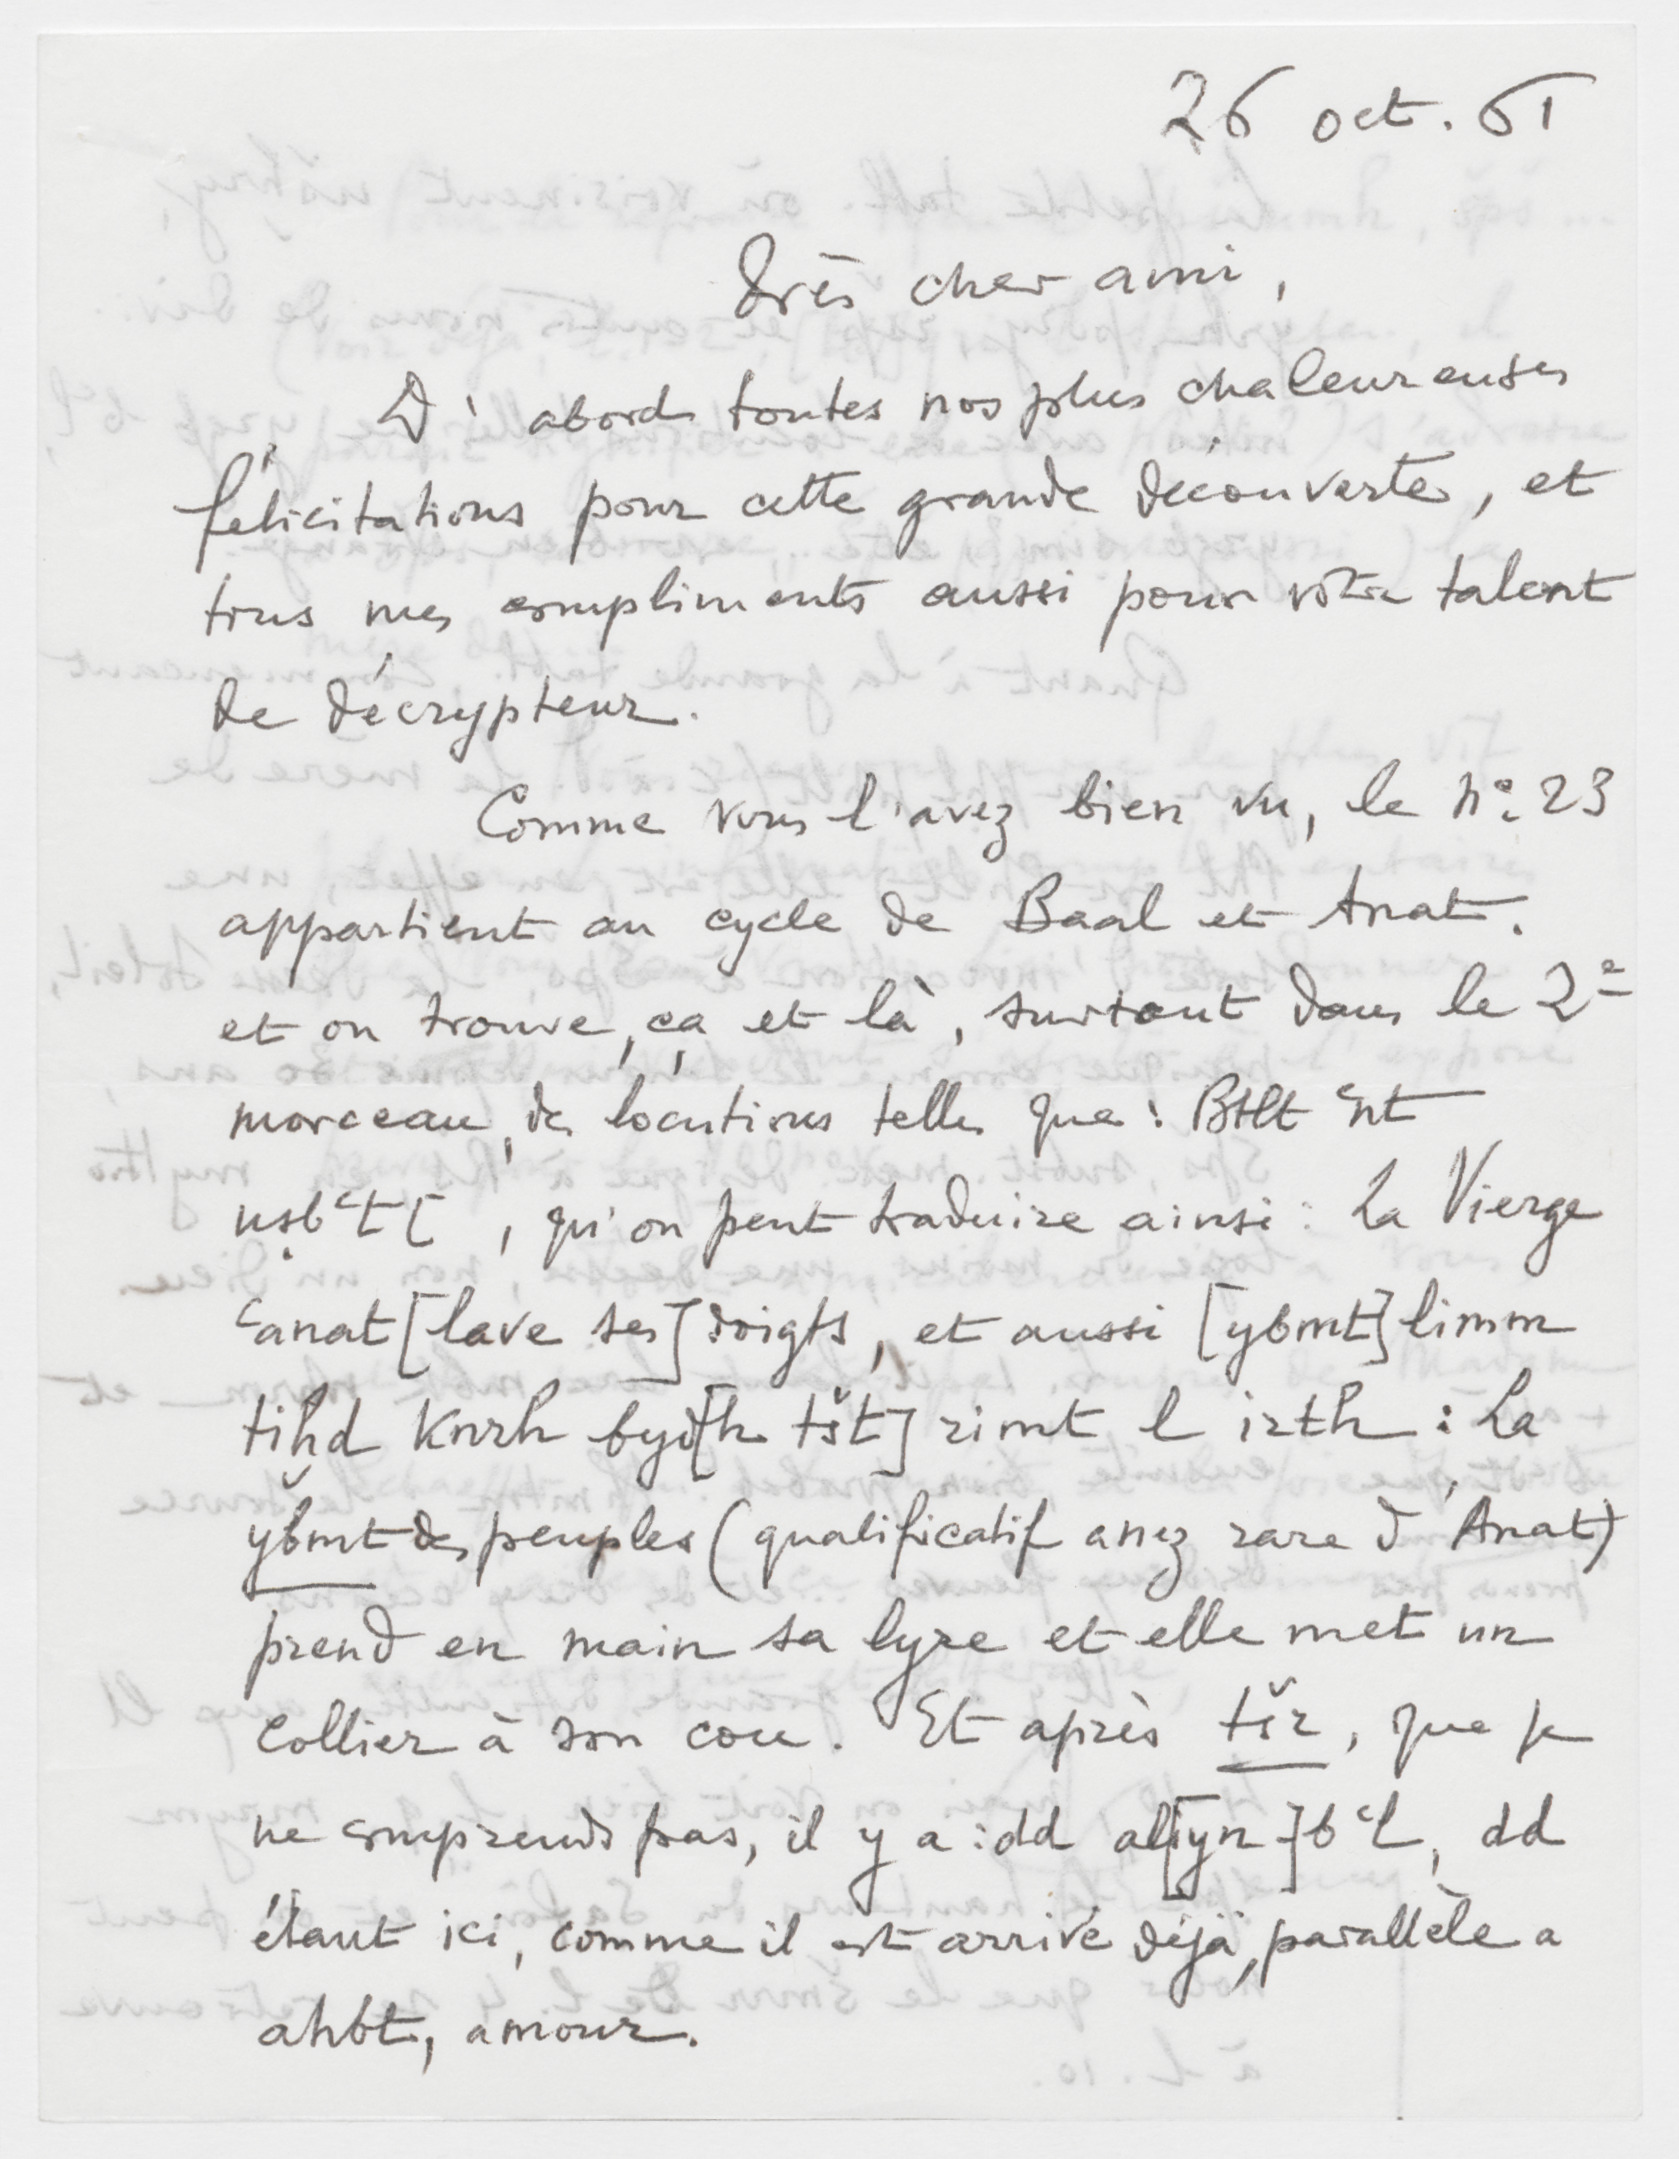 26 oct. 61
Très cher ami,
D'abord toutes nos plus chaleureuses
félicitations pour cette grande découverte, et
tous mes compliments aussi pour votre talent
de décrypteur.
Comme vous l'avez bien vu, le n° 23
appartient au cycle de Baal et Anat.
et on trouve, ça et là, surtout dans le 2e
morceau, des locutions telles que : Btlt ʿnt
uṣbʿt[ , qu'on peut traduire ainsi : La Vierge
ʿanat [lave ses] doigts, et aussi [ybmt] limm
tiḫd knrh byd[h tšt] rimt l irth : La
ybmt des peuples (qualificatif assez rare d'Anat)
prend en main sa lyre et elle met un
collier à son cou. Et après tšr, que je
ne comprends pas, il y a : dd al[iyn] bʿl, dd
étant ici, comme il est arrivé déjà, parallèle a
ahbt, amour.